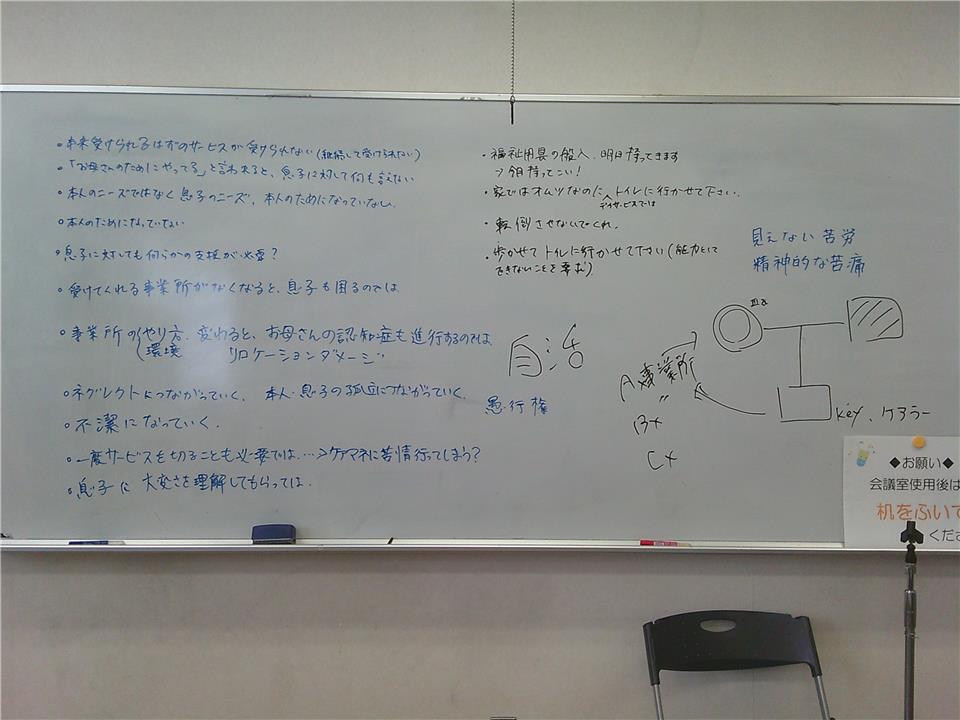 ・本来受けられるはずのサービスが受けられない(継続して受けられない)
・「お母さんのためにやってる」と言われると、息子に対して何も言えない
・本人のニーズではなく息子のニーズ、本人のためになっていない
・本人のためになっていない
・息子に対しても何らかの支援が必要?
・受けてくれる事業所がなくなると、息子も困るのでは
・事業所のやり方、変わると、お母さんの認知症も進行するのでは
環境 リロケーションダメージ
・ネグレクトにつながっていく、本人・息子の孤立につながっていく、
・不潔になっていく、
・一度サービスを切ることも必要では、…>ケアマネに苦情行ってしまう?
・息子に大変さを理解してもらっては、
・福祉用具の搬入、明日持ってきます
→今日持ってこい!
・家ではオムツなのに、トイレに行かせて下さい、
デイサービスでは
・転倒させないでくれ、
・歩かせてトイレに行かせて下さい(能力として
できないことを要求)
見えない苦労
精神的な苦痛
自活
愚行権
A事業所
B〃
C〃
key、ケアラー
◆お願い◆
会議室使用後は
机をふいて
くださ